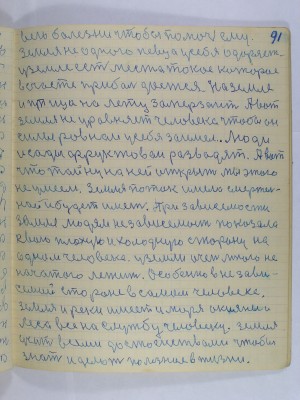 91
чело болезни чтобы помочь ему.
Земля не одного певца у себя одаряет.
У земле есть места такое которое
вечности прибли дается. На земле
и птица на лету замерзает. А вот
земля не уровняет человека чтобы он
силы ровном у себя занимел. Люди
и сады фруктовои разводят. А вот
что тайну на ней открыть мы этого
не умеем. Земля поток имела смертен-
ной и будет иметь. При зависемости
земля людям независемость показала
свою плохую и холодную сторону на
одном человеке. У земли очень много не
початого лежит. Особенно в незави-
семой стороне в самом человеке.
Земля и реки имеет и моря океаны и
леса все на службу человеку. Земля
учит всеми достоинствами чтобы
знать и делать полезное в жизни.